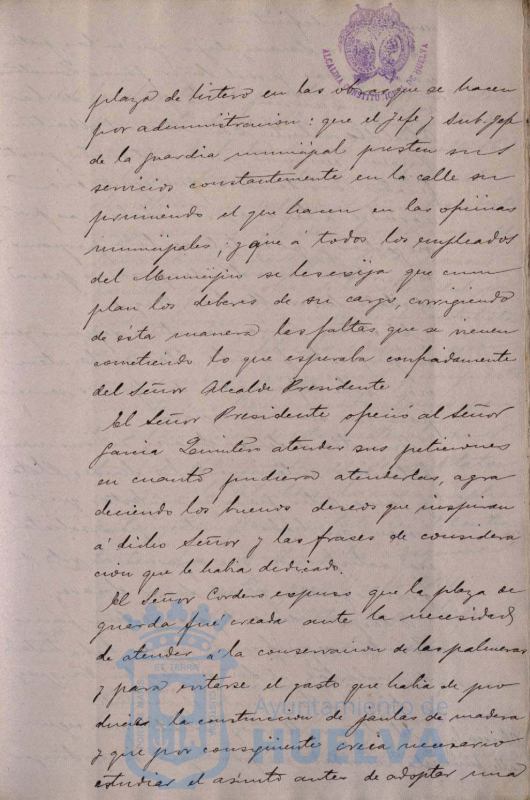 ALCALDIA CONSTITUCIONAL DE HUELVA
plaza de listero en las obras que se hacen
por administracion: que el Jefe y Sub-Jefe
de la guardia municipal presten sus
servicios constantemente en la calle su
primiendo el que hacen en las oficinas
municipales, y que á todos los empleados
del Municipio se les exija que cum
plan los deberes de su cargo, corrigiendo
de ésta manera las faltas que se vienen
cometiendo lo que esperaba confiadamente
del Señor Alcalde Presidente
El Señor Presidente ofreció al Señor
Garcia Quintero atender sus peticiones
en cuanto pudiera atenderlas, agra
deciendo los buenos deseos que inspiran
á dicho Señor y las frases de considera
cion que le habia dedicado.
El Señor Cordero expuso que la plaza de
guarda fué creada ante la necesidad
de atender á la conservacion de las palmeras
y para evitarse el gasto que habia de pro
ducir la construccion de jaulas de madera
y que por consiguiente creia necesario
estudiar el asunto antes de adoptar una
Ayuntamiento de
HUELVA